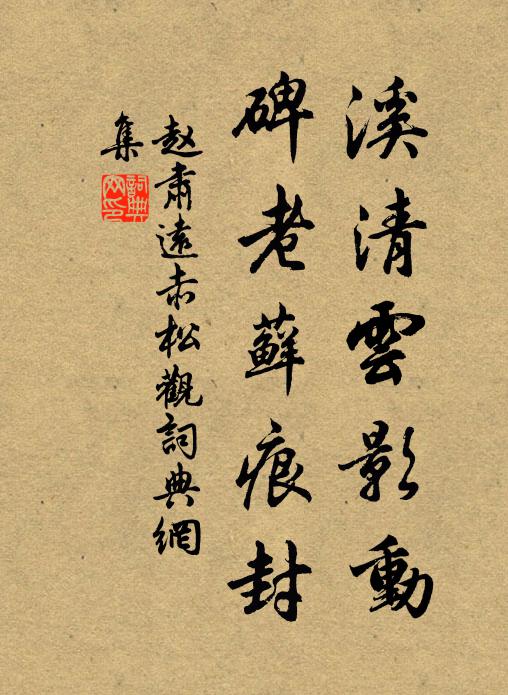 溪清雲影動
碑老蘚痕封
赵肅遠赤松觀詞典網
集
詞典网印